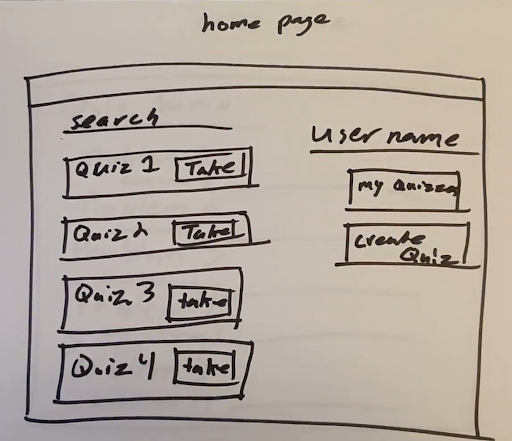 home page
search
Quiz 1 Take
Quiz 2 Take
Quiz 3 take
Quiz 4 take
User name
my Quizzes
create
Quiz